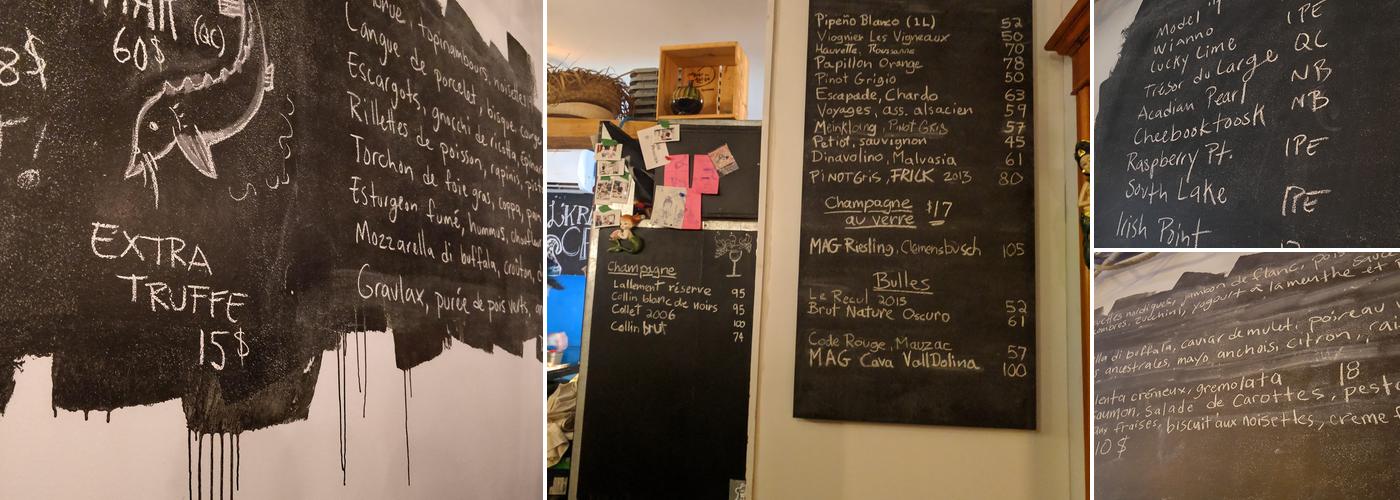 (QC)
60$
8$
EXTRA
TRUFFE
15$
topinambours,
Langue de porcelet, bisque
Escargots, gnocchi de ricotta,
Rillettes de poisson, rapinis,
Torchon de foie gras, coppa,
Esturgeon fumé, hummus,
Mozzarella di buffala, crouton,
Gravlax, purée de pois verts,
Champagne
Lallement réserve 95
Collin blanc de noirs 95
Collet 2006 100
Collin brut 74
Pipeño Blanco (1L) 52
Viognier Les Vigneaux 50
Hauvette, Roussanne 70
Papillon Orange 78
Pinot Grigio 50
Escapade, Chardo 63
Voyages, ass. alsacien 59
Meinklang, Pinot Gris 57
Petiot, sauvignon 45
Dinavolino, Malvasia 61
PINOT Gris, FRICK 2013 80
Champagne
au verre $17
MAG Riesling, Clemensbusch 105
Bulles
Le Recul 2015 52
Brut Nature Oscuro 61
Code Rouge, Mauzac 57
MAG Cava VallDolina 100
Model
Wianno IPE
Lucky Lime QC
Trésor du Large NB
Acadian Pearl NB
Cheebooktoosk
Raspberry Pt. IPE
South Lake
Irish Point IPE
nordiques, jambon de flanc,
zucchini, yogourt à la menthe et
di buffala, caviar de mulet, poireau
ancestrales, mayo anchois, citron,
crémeux, gremolata 18
saumon, salade de carottes, pesto
aux fraises, biscuit aux noisettes, crème
10$